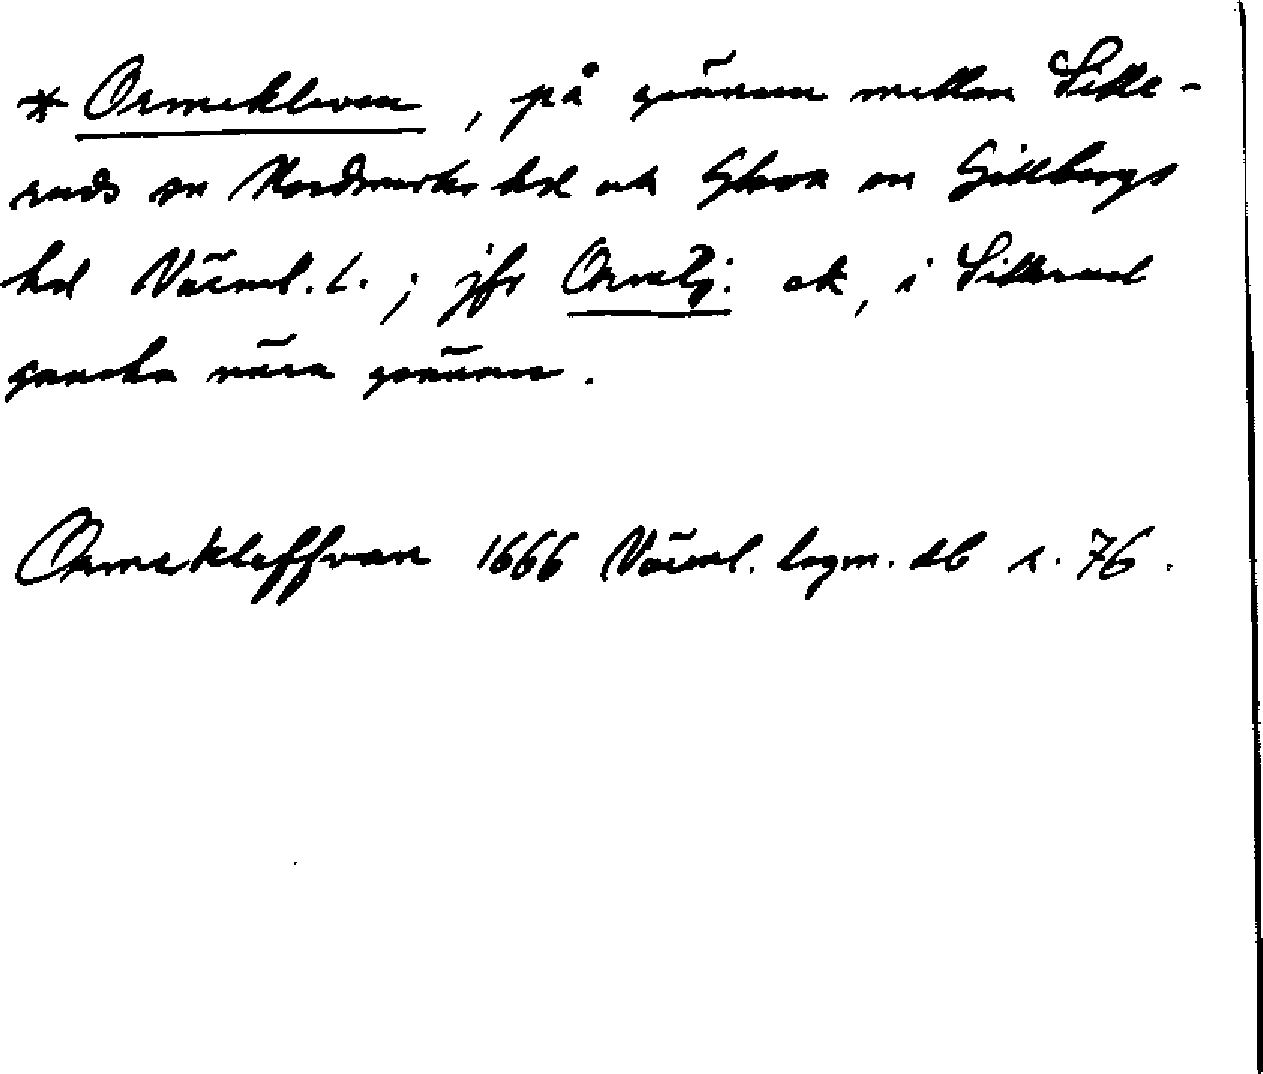 * Ormekleven, på gränsen mellan Sille-
ruds sn Nordmarks hd och Glava sn Gillbergs
hd Värml. l. ; jfr ek, i Sillerud
ganska nära gränsen.
Ormekleffwan 1666 Värml. lagm. db s. 76.